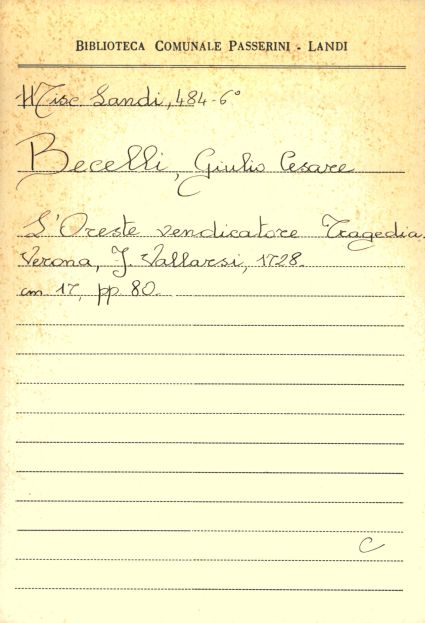 BIBLIOTECA COMUNALE PASSERINI - LANDI
Misc. Landi, 484-6°
Becelli, Giulio Cesare
L'Oreste vendicatore Tragedia.
Verona, J. Vallarsi, 1728.
cm 17, pp. 80.
C